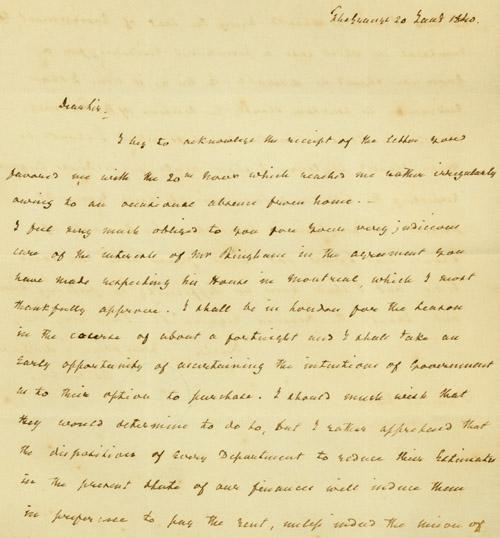 The Grange 20 Jany 1840.
Dear Sir,
I beg to acknowledge the receipt of the letter you
favoured me with the 20th Novr which reached me rather irregularly
owing to an occasional absence from home. -
I feel very much obliged to you for your very judicious
care of the interests of Mr Bingham in the agreement you
have made respecting his House in Montreal, which I most
thankfully approve. I shall be in London for the Season
in the course of about a fortnight and I shall take an
early opportunity of ascertaining the intentions of Government
as to their option to purchase. I should much wish that
they would determine to do so, but I rather apprehend that
the disposition of every Department to reduce their Estimates
in the present state of our finances will induce them
in preference to pay the rent, unless indeed the union of